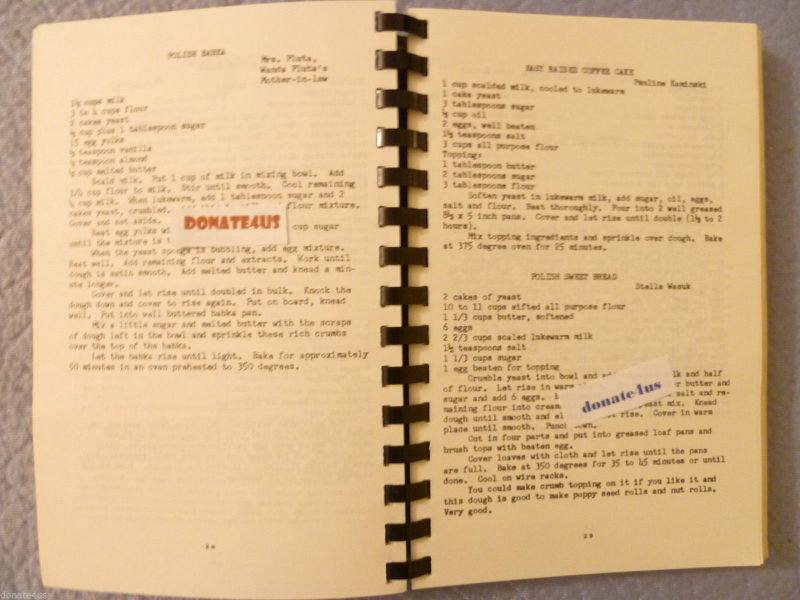 POLISH BABKA
Mrs. Pluta,
Wanda Pluta's
Mother-in-law
1½ cups milk
3 to 4 cups flour
2 cakes yeast
cup plus 1 tablespoon sugar
15 egg yolks
teaspoon vanilla
teaspoon almond
cup melted butter
Scald milk. Put 1 cup of milk in mixing bowl. Add
1¼ cup flour to milk. Stir until smooth. Cool remaining
½ cup milk. When lukewarm, add 1 tablespoon sugar and 2
cakes yeast, crumbled. flour mixture.
Cover and set aside.
Beat egg yolks wi cup sugar
until the mixture is t
DONATE4US
When the yeast sponge is bubbling, add egg mixture.
Beat well. Add remaining flour and extracts. Work until
dough is satin smooth. Add melted butter and knead a min-
ute longer.
Cover and let rise until doubled in bulk. Knock the
dough down and cover to rise again. Put on board, knead
well. Put into well buttered babka pan.
Mix a little sugar and melted butter with the scraps
of dough left in the bowl and sprinkle these rich crumbs
over the top of the babka.
Let the babka rise until light. Bake for approximately
50 minutes in an oven preheated to 350 degrees.
EASY RAISED COFFEE CAKE
Pauline Kaminski
1 cup scalded milk, cooled to lukewarm
1 cake yeast
3 tablespoons sugar
cup oil
2 eggs, well beaten
1½ teaspoons salt
3 cups all purpose flour
Topping:
1 tablespoon butter
2 tablespoons sugar
3 tablespoons flour
Soften yeast in lukewarm milk, add sugar, oil, eggs,
salt and flour. Beat thoroughly. Pour into 2 well greased
8½ x 5 inch pans. Cover and let rise until double (1½ to 2
hours).
Mix topping ingredients and sprinkle over dough. Bake
at 375 degree oven for 25 minutes.
POLISH SWEET BREAD
Stella Wasuk
2 cakes of yeast
10 to 11 cups sifted all purpose flour
1 1/3 cups butter, softened
6 eggs
2 2/3 cups scaled lukewarm milk
1½ teaspoons salt
1 1/3 cups sugar
1 egg beaten for topping
Crumble yeast into bowl and lk and half
of flour. Let rise in warm r butter and
sugar and add 6 eggs. salt and re-
maining flour into cream east mix. Knead
dough until smooth and el rise. Cover in warm
place until smooth. Punch down.
donate4us
Cut in four parts and put into greased loaf pans and
brush tops with beaten egg.
Cover loaves with cloth and let rise until the pans
are full. Bake at 350 degrees for 35 to 45 minutes or until
done. Cool on wire racks.
You could make crumb topping on it if you like it and
this dough is good to make poppy seed rolls and nut rolls.
Very good.
29
donate4us